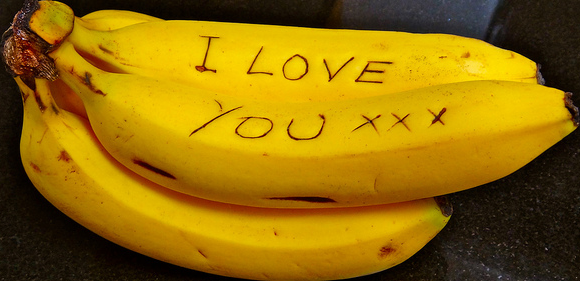 I LOVE
YOU xxx